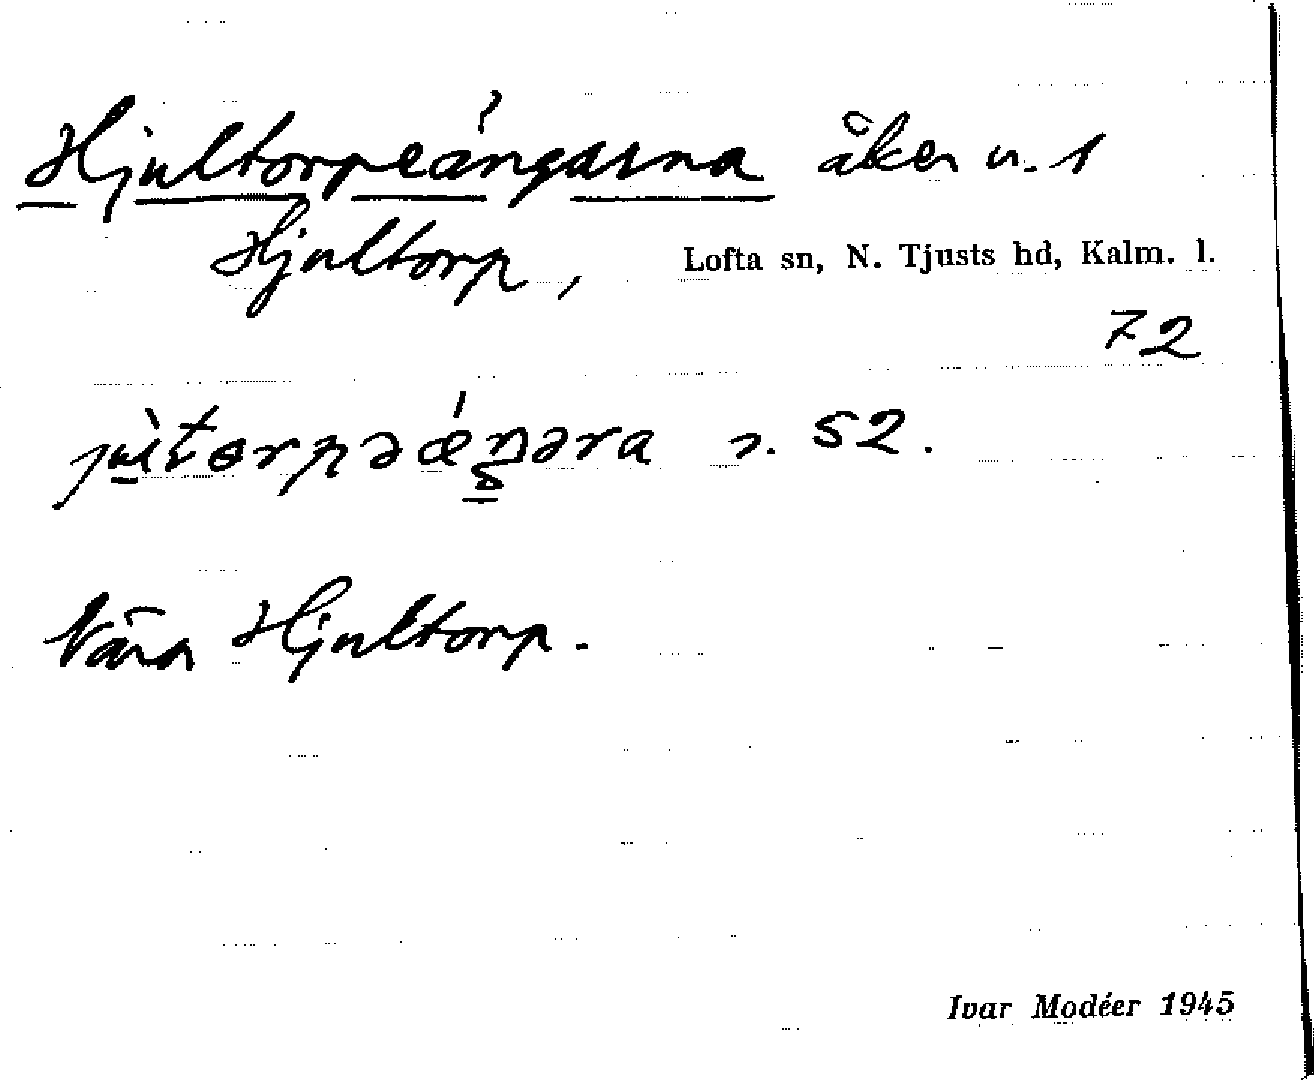 Hjultorpeängarna åker n. 1
Hjultorp,
Lofta sn, N. Tjusts hd, Kalm. l.
72
s. 52.
Nära Hjultorp.
Ivar Modéer 1945